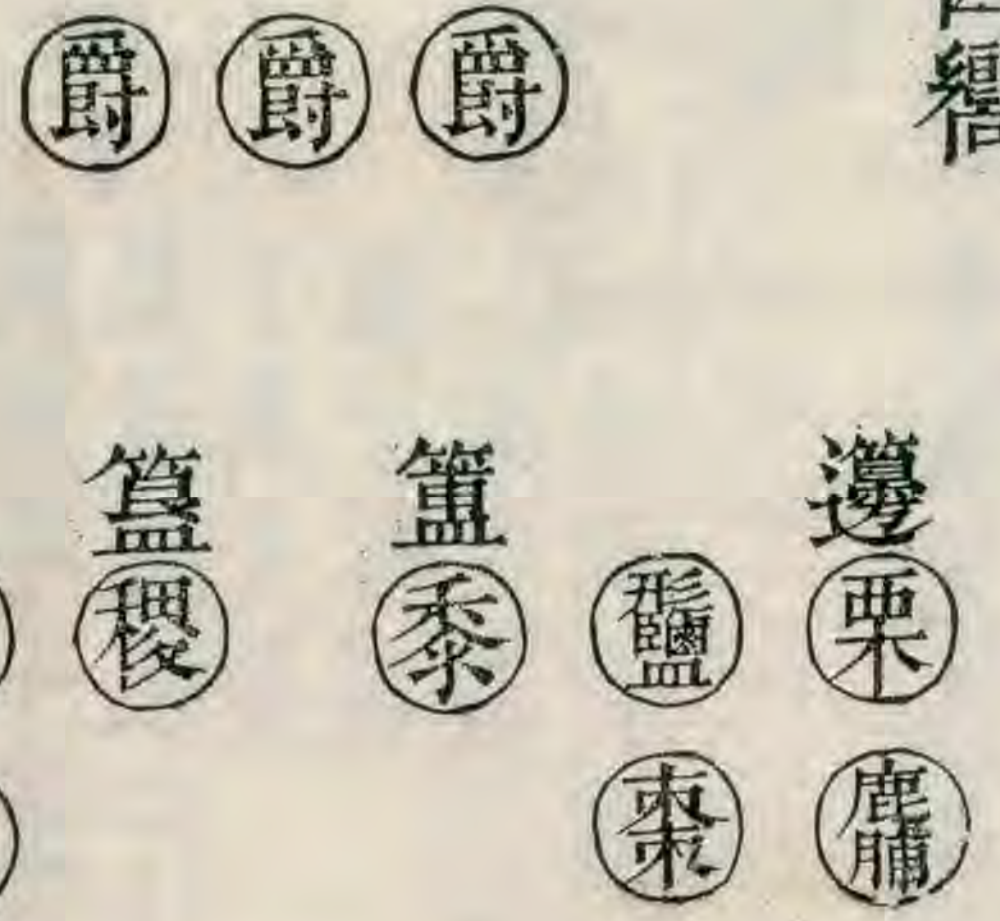 爵 爵 爵
簋 簠 籩
稷 黍 形鹽 栗
棗 鹿脯